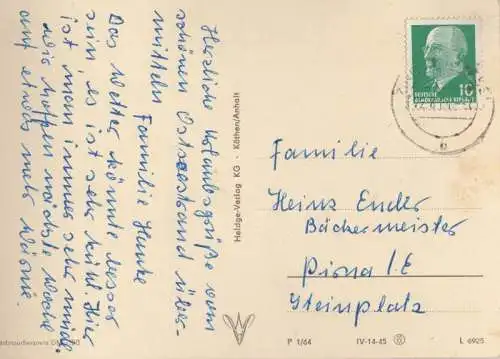 Herzliche Urlaubsgrüße vom
schönen Ostseestrand über-
mitteln
Familie
Das Wetter könnte besser
sein es ist sehr kühl. Hier
ist man immer sehr müde.
Wir hoffen nächste Woche
auf etwas mehr Wärme.
Heldge-Verlag KG - Köthen/Anhalt
DEUTSCHE
DEMOKRATISCHE REPUBLIK
10
Familie
Heinz Ender
Bäckermeister
Pirna /. E
Steinplatz
P 1/64
IV-14-45
L 6925